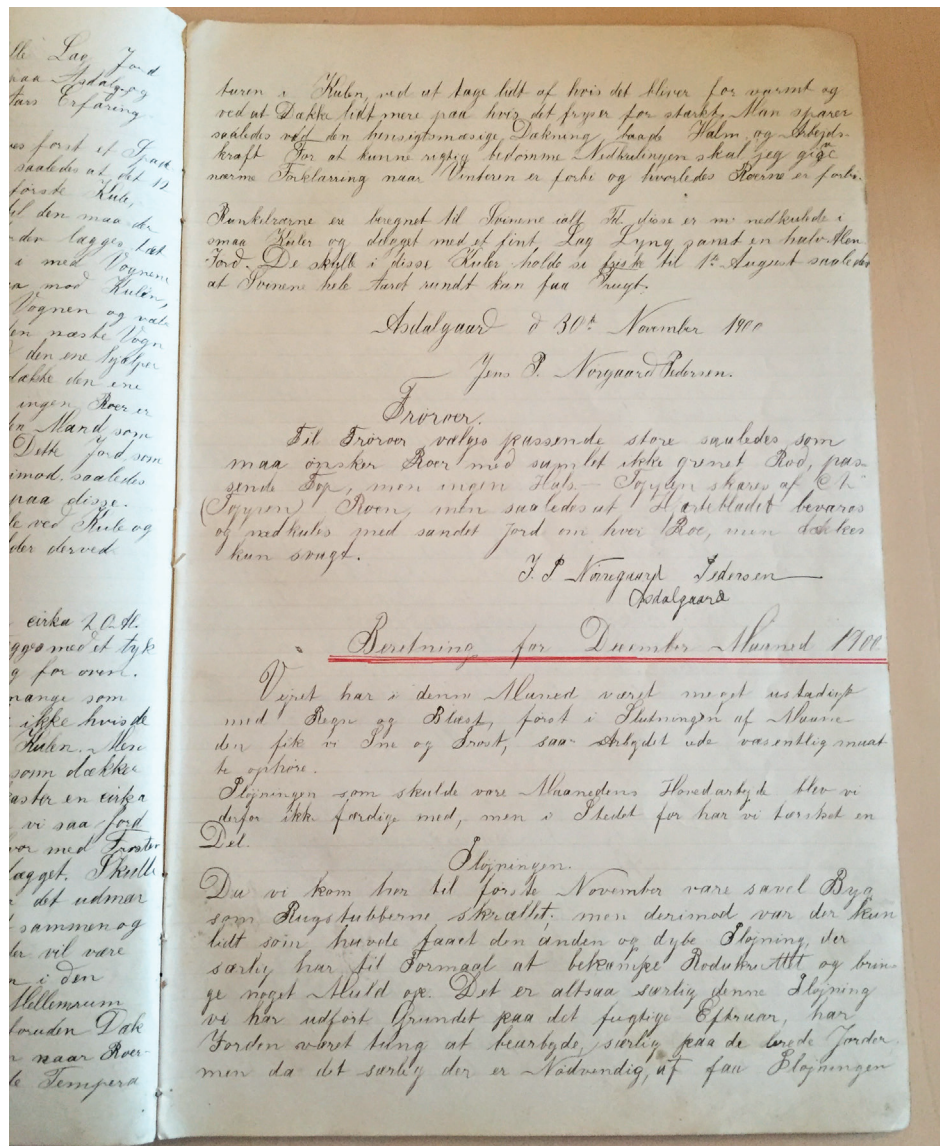 lle Lag Jord
maa Asdalgaard
tars Erfaring
es först et Spad
saaledes at det 12
förste Kule,
til den maa der
den lægges tæt
i med Vognene
mod Kulen,
Vognen og
en næste Vogn
den ene hjælper
dække den ene
ingen Roer er
en Mand som
Dette Jord som
imod. saaledes
paa disse.
le ved Kule og
lder derved.
cirka 20 Al.
gges med et tyk
g for oven.
mange som
i ikke hvis de
Kulen. Men
som dække
kaster en cirka
vi saa Jord
var med Froster
lægget. Skulle
det udmær
sammen og
der vil være
n i den
Mellemrum
foruden Dæk
n naar Roer-
de Tempera
turen i Kulen, ved at tage lidt af hvis det bliver for varmt og
ved at Dække lidt mere paa hvis det fryser for stærkt. Man sparer
saaledes ved den hensigtsmæsige Dækning, baade Halm og Arbejds-
kraft For at kunne rigtig bedömme Nedkulingen skal jeg give
nærme Forklarring naar Vinteren er forbi og hvorledes Roerne er forbi.
Runkelroerne ere beregnet til Svinene ialt Td. disse er nedkulede i
smaa Kuler og dækget med et fint Lag Lyng samt en halv Alen
Jord. De skulle i disse Kuler holde se friske til 1ste August saaledes
at Svinene hele Aaret rundt kan faa Frugt.
Asdalgaard d 30te November 1900
Jens P. Norgaard Pedersen.
Fröroer.
Til Fröroer vælges passende store saaledes som
maa önsker Roer med samlet ikke grenet Rod, pas-
sende Top, men ingen Hals - Toppen skæres af
(Toppen) Roen, men saaledes at Hjærtebladet bevares
og nedkules med sandet Jord om hver Roe, men dækkes
kun svagt.
J. P Norregaard Pedersen
Asdalgaard
Beretning for December Maaned 1900
Vejret har i denne Maned været meget ustadigt
med Regn og Blæst, först i Slutningen af Maane
den fik vi Sne og Frost, saa Arbejdet ude væsentlig maat
te ophöre.
Plöjningen som skulde være Maanedens Hovedarbejde blev vi
derfor ikke færdige med, men i Stedet for har vi tærsket en
Del.
Plöjningen.
Da vi kom her til förste November vare savel Byg
som Rugstubberne skrællet; men derimod var der kun
lidt som havde faaet den anden og dybe Plöjning, der
særlig har til Formaal at bekæmpe Rodukrudt og brin-
ge noget Muld op. Det er altsaa særlig denne Plöjning
vi har udfört Grundet paa det fugtige Efteraar, har
Jorden været tung at bearbejde, særlig paa de lerede Jorder
men da det særlig der er Nödvendig, at faa Plöjningen